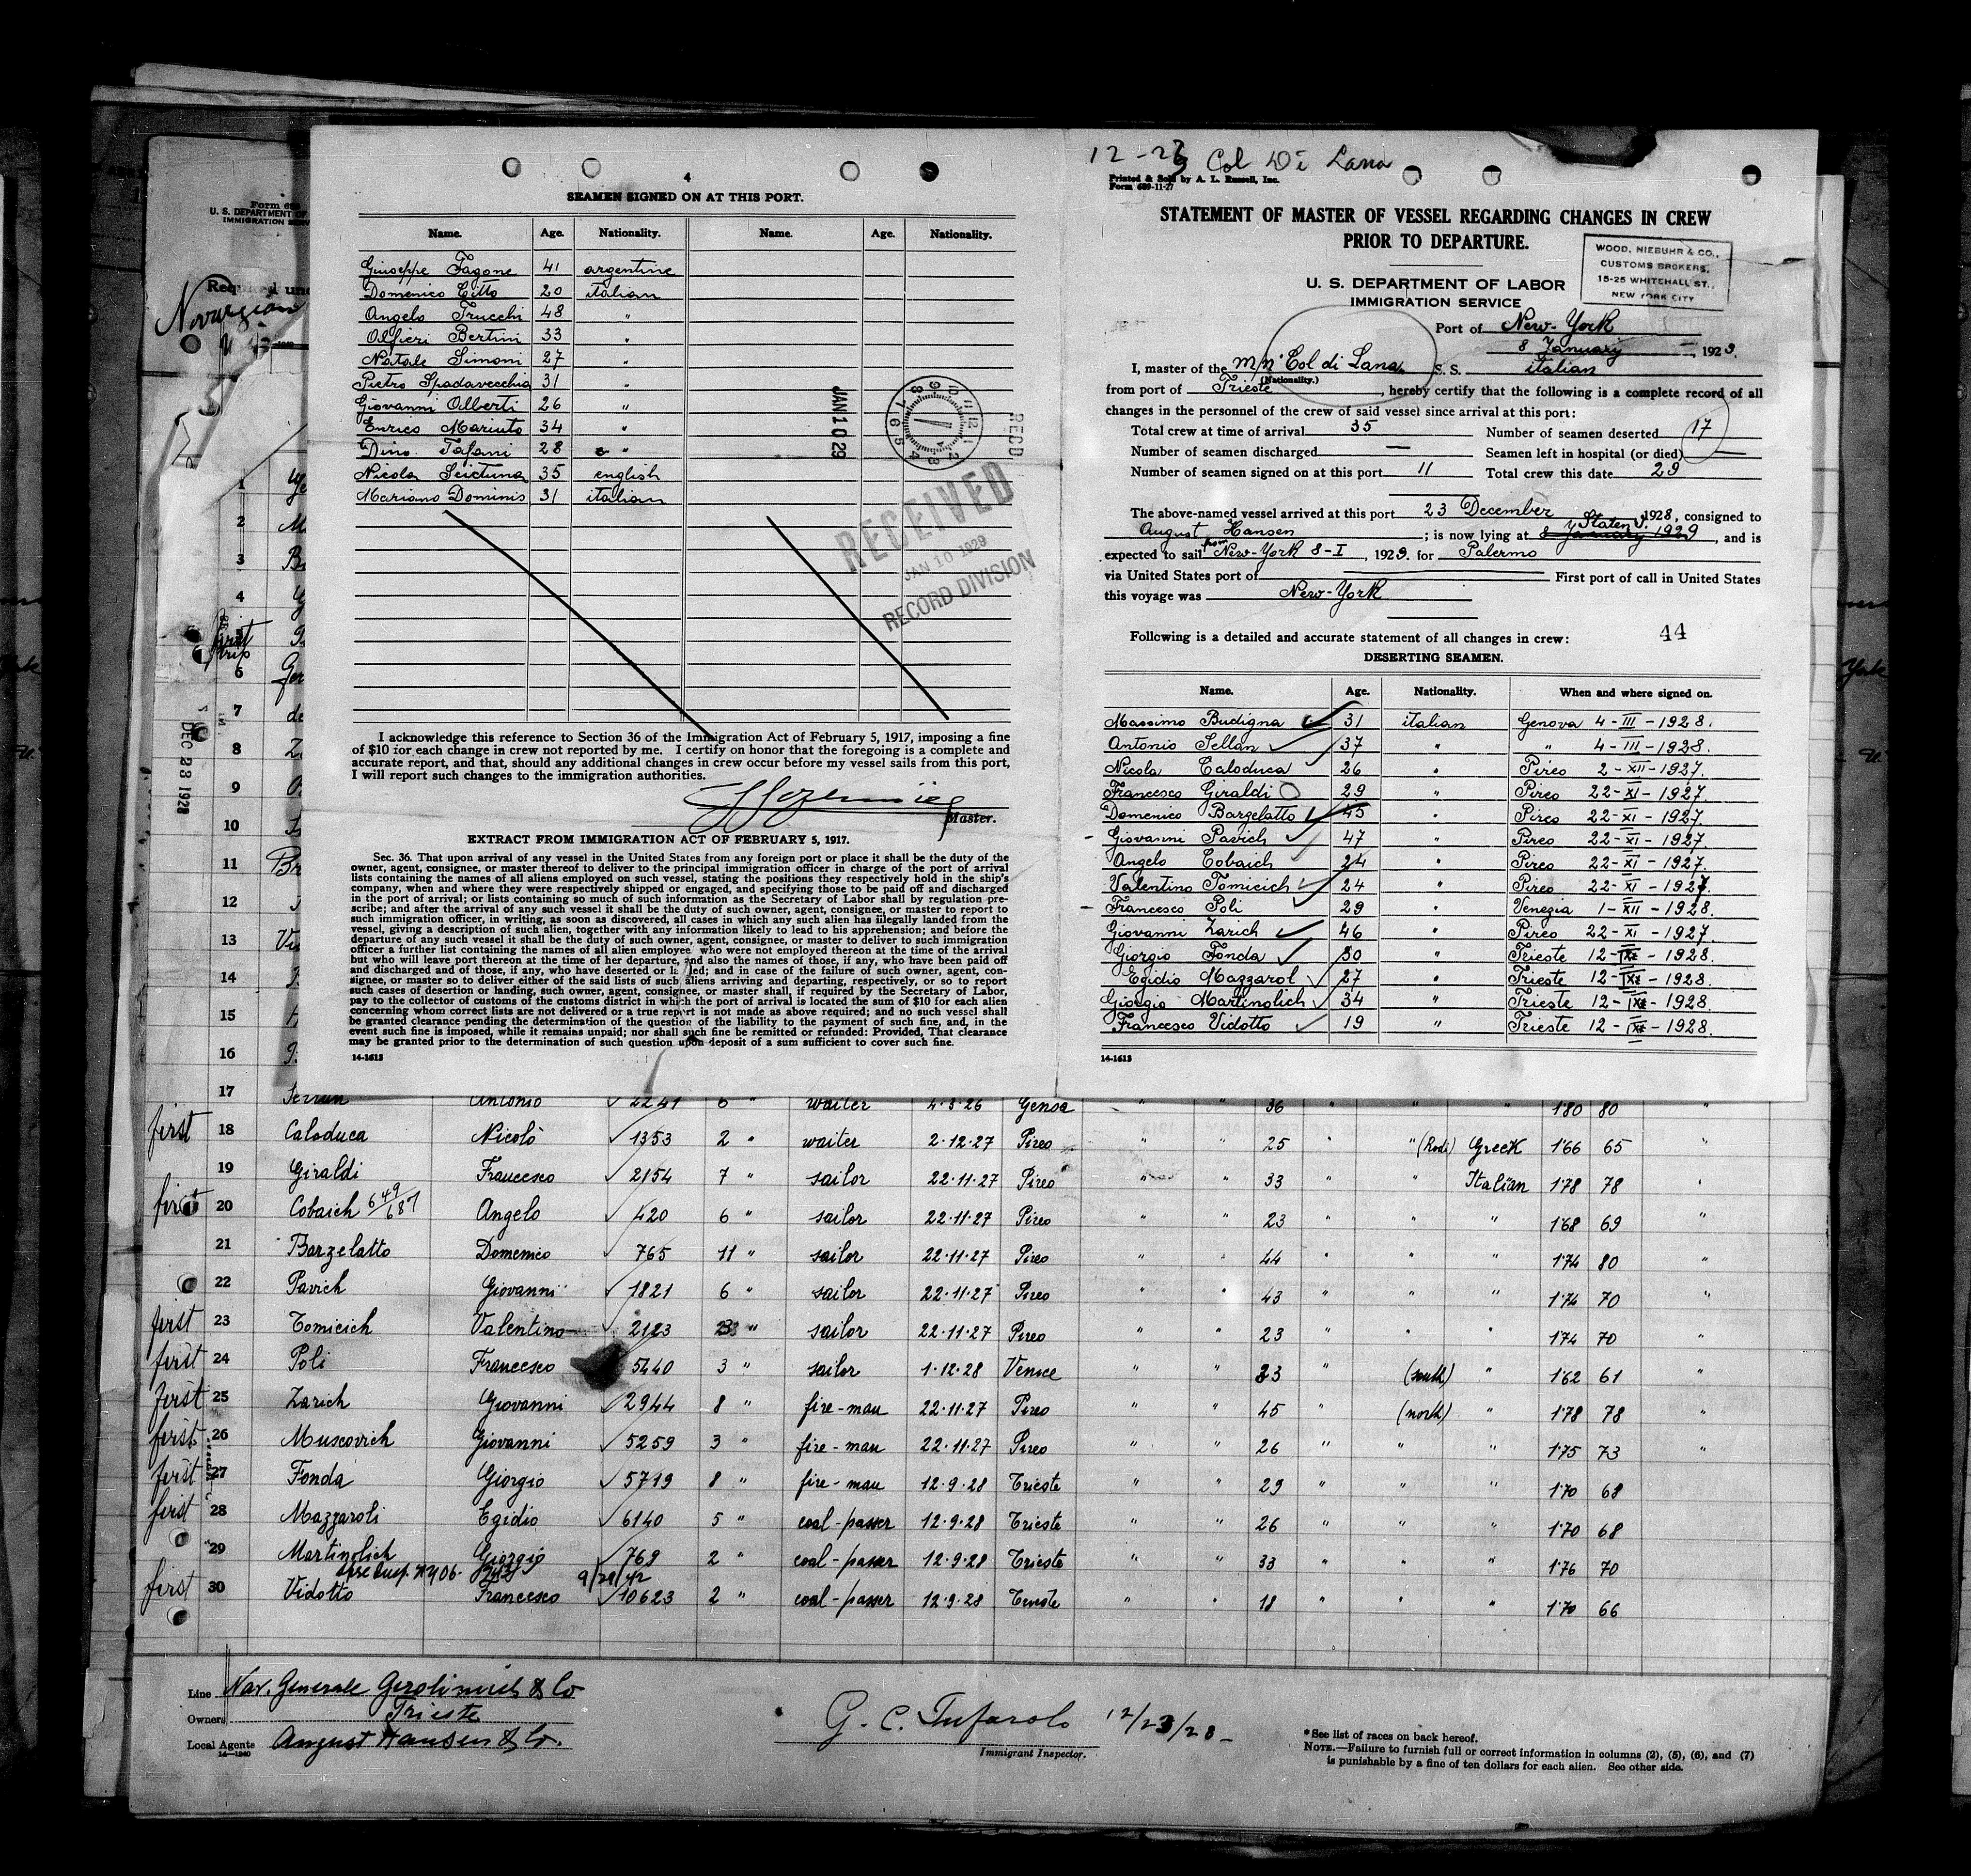 4
SEAMEN SIGNED ON AT THIS PORT.
Name. Age. Nationality. Name. Age. Nationality.
Giuseppe Fagone 41 argentine
Domenico Citto 20 italian
Angelo Trucchi 48 "
Olfieri Bertini 33 "
Natale Simoni 27 "
Pietro Spadavecchia 31 "
Giovanni Alberti 26 "
Enrico Mariuto 34 "
Dino Tafani 28 "
Nicola Scictuna 35 english
Mariano Dominis 31 italian
JAN 10 29
RECD
RECEIVED
JAN 10 1929
RECORD DIVISION
I acknowledge this reference to Section 36 of the Immigration Act of February 5, 1917, imposing a fine
of $10 for each change in crew not reported by me. I certify on honor that the foregoing is a complete and
accurate report, and that, should any additional changes in crew occur before my vessel sails from this port,
I will report such changes to the immigration authorities.
Master.
EXTRACT FROM IMMIGRATION ACT OF FEBRUARY 5, 1917.
Sec. 36. That upon arrival of any vessel in the United States from any foreign port or place it shall be the duty of the
owner, agent, consignee, or master thereof to deliver to the principal immigration officer in charge of the port of arrival
lists containing the names of all aliens employed on such vessel, stating the positions they respectively hold in the ship's
company, when and where they were respectively shipped or engaged, and specifying those to be paid off and discharged
in the port of arrival; or lists containing so much of such information as the Secretary of Labor shall by regulation pre-
scribe; and after the arrival of any such vessel it shall be the duty of such owner, agent, consignee, or master to report to
such immigration officer, in writing, as soon as discovered, all cases in which any such alien has illegally landed from the
vessel, giving a description of such alien, together with any information likely to lead to his apprehension; and before the
departure of any such vessel it shall be the duty of such owner, agent, consignee, or master to deliver to such immigration
officer a further list containing the names of all alien employee who were not employed thereon at the time of the arrival
but who will leave port thereon at the time of her departure, and also the names of those, if any, who have been paid off
and discharged and of those, if any, who have deserted or landed; and in case of the failure of such owner, agent, con-
signee, or master so to deliver either of the said lists of such aliens arriving and departing, respectively, or so to report
such cases of desertion or landing, such owner, agent, consignee, or master shall, if required by the Secretary of Labor,
pay to the collector of customs of the customs district in which the port of arrival is located the sum of $10 for each alien
concerning whom correct lists are not delivered or a true report is not made as above required; and no such vessel shall
be granted clearance pending the determination of the question of the liability to the payment of such fine, and, in the
event such fine is imposed, while it remains unpaid; nor shall such fine be remitted or refunded: Provided, That clearance
may be granted prior to the determination of such question upon deposit of a sum sufficient to cover such fine.
14-1613
12-23 Col Di Lana
Printed & Sold by A. L. Russell, Inc.
Form 689-11-27
STATEMENT OF MASTER OF VESSEL REGARDING CHANGES IN CREW
PRIOR TO DEPARTURE.
WOOD, NIEBUHR & CO.,
CUSTOMS BROKERS,
15-25 WHITEHALL ST.,
NEW YORK CITY
U. S. DEPARTMENT OF LABOR
IMMIGRATION SERVICE
Port of New-York
8 January, 1929.
I, master of the m/n Col di Lana S. S. italian
(Nationality.)
from port of Trieste, hereby certify that the following is a complete record of all
changes in the personnel of the crew of said vessel since arrival at this port:
Total crew at time of arrival 35 Number of seamen deserted 17
Number of seamen discharged — Seamen left in hospital (or died) —
Number of seamen signed on at this port 11 Total crew this date 29
The above-named vessel arrived at this port 23 December, 1928, consigned to
August Hansen; is now lying at 8 January 1929 Staten I., and is
expected to sail from New-York 8-I, 1929. for Palermo
via United States port of First port of call in United States
this voyage was New-York
Following is a detailed and accurate statement of all changes in crew: 44
DESERTING SEAMEN.
Name. Age. Nationality. When and where signed on.
Massimo Budigna 31 italian Genova 4-III-1928.
Antonio Sellan 37 " " 4-III-1928.
Nicola Caloduca 26 " Pireo 2-XII-1927.
Francesco Giraldi 29 " Pireo 22-XI-1927.
Domenico Bargelatto 45 " Pireo 22-XI-1927.
Giovanni Pavich 47 " Pireo 22-XI-1927.
Angelo Cobaich 24 " Pireo 22-XI-1927.
Valentino Tomicich 24 " Pireo 22-XI-1927.
Francesco Poli 29 " Venezia 1-XII-1928.
Giovanni Zarich 46 " Pireo 22-XI-1927.
Giorgio Fonda 30 " Trieste 12-IX-1928.
Egidio Mazzarol 27 " Trieste 12-IX-1928.
Giorgio Martinolich 34 " Trieste 12-IX-1928.
Francesco Vidotto 19 " Trieste 12-IX-1928.
14-1613
U. S. DEPARTMENT OF
Norwegian
DEC 23 1928
first trip
1
2
3
4
6
7
8
9
10
11
12
13
14
15
16
17 Antonio 2241 6 " waiter 4.3.26 Genoa " " 36 " " " 1'80 80 "
first 18 Caloduca Nicolò 1353 2 " waiter 2.12.27 Pireo " " 25 " " (Rodi) Greek 1'66 65
19 Giraldi Francesco 2154 7 " sailor 22.11.27 Pireo " " 33 " " Italian 1'78 78 "
first 20 Cobaich 649/687 Angelo 420 6 " sailor 22.11.27 Pireo " " 23 " " " 1'68 69 "
21 Barzelatto Domenico 765 11 " sailor 22.11.27 Pireo " " 44 " " " 1'74 80 "
22 Pavich Giovanni 1821 6 " sailor 22.11.27 Pireo " " 43 " " " 1'74 70 "
first 23 Tomicich Valentino 2123 " sailor 22.11.27 Pireo " " 23 " " " 1'74 70 "
first 24 Poli Francesco 5440 3 " sailor 1.12.28 Venice " " 23 " (south) " 1'62 61 "
first 25 Zarich Giovanni 2944 8 " fire-man 22.11.27 Pireo " " 45 " (north) " 1'78 78 "
first 26 Muscovich Giovanni 5259 3 " fire-man 22.11.27 Pireo " " 26 " " " 1'75 73 "
first 27 Fonda Giorgio 5719 8 " fire-man 12.9.28 Trieste " " 29 " " " 1'70 68
first 28 Mazzaroli Egidio 6140 5 " coal-passer 12.9.28 Trieste " " 26 " " " 1'70 68
29 Martinolich Giorgio 769 2 " coal-passer 12.9.28 Trieste " " 33 " " " 1'76 70
9/29/42
first 30 Vidotto Francesco 10623 2 " coal-passer 12.9.28 Trieste " " 18 " " " 1'70 66
Line Nav. Generale Gerolimich & Co
Owners Trieste
Local Agents August Hansen & Co.
14-1240
G. C. Tufarolo 12/23/28-
Immigrant Inspector.
*See list of races on back hereof.
NOTE.—Failure to furnish full or correct information in columns (2), (5), (6), and (7)
is punishable by a fine of ten dollars for each alien. See other side.